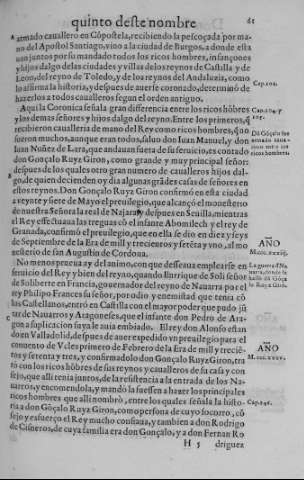 quinto deste nombre 61
armado cauallero en Cõpostela, recibiendo la pescoçada por ma-
no del Apostol Santiago, vino a la ciudad de Burgos, a donde esta
uan juntos por su mandado todos los ricos hombres, infançones
y hijos dalgo de las ciudades y villas de los reynos de Castilla y de
Leon, del reyno de Toledo, y de los reynos del Andaluzia, como
lo affirma la historia, y despues de auerse coronado, determinó de
hazerlos a todos caualleros segun el orden antiguo.
Cap.100.
Aqui la Coronica señala gran differencia entre los ricos hõbres
y los demas señores y hijos dalgo del reyno. Entre los primeros, q̃
recibieron caualleria de mano del Rey como ricos hombres, que no
fueron muchos, aunque eran todos, saluo don Iuan Manuel, y don
Iuan Nuñez de Lara, que andauan fuera de su seruicio, es contado
don Gonçalo Ruyz Giron, como grande y muy principal señor:
despues de los quales otro gran numero de caualleros hijos dal-
go, de quien decienden oy dia algunas grãdes casas de señores en
estos reynos. Don Gonçalo Ruyz Giron confirmó en esta ciudad
a veynte y siete de Mayo el preuilegio, que alcançó el monesterio
de nuestra Señora la real de Najara, y despues en Seuilla, mientras
el Rey effectuaua las treguas cõ el infante Abomilech y el rey de
Granada, confirmó el preuilegio, que en ella se dio en diez y seys
de Septiembre de la Era de mill y trezientos y setẽta y vno, al mo
nesterio de san Augustin de Cordoua.
ricos hombres.
AÑO
No menos priessa y del animo, con que desseaua emplearse en
seruicio del Rey y bien del reyno, quando Enrrique de Soli señor
de Soliberte en Francia, gouernador del reyno de Nauarra por el
rey Philipo Frances su señor, por odio y enemistad que tenia cõ
los Castellanos, entró en Castilla con el mayor poder que pudo jũ
tar de Nauarros y Aragoneses, que el infante don Pedro de Ara-
gon a suplicacion suya le auia embiado. El rey don Alonso estan
do en Valladolid, despues de auer expedido vn preuilegio para el
conuento de Vcles primero de Febrero de la Era de mill y trezien-
tos y setenta y tres, y confirmadolo don Gonçalo Ruyz Giron, tra
tó con los ricos hõbres de sus reynos y caualleros de su casa y con-
sejo, que alli tenia juntos, de la resistencia a la entrada de los Na-
uarros, y encomendola, y mandó la fuessen a hazer los principales
ricos hombres que alli nombró, entre los quales señala la histo-
ria a don Gõçalo Ruyz Giron, como persona de cuyo socorro, cõ
sejo y esfuerço el Rey mucho confiaua, y tambien a don Rodrigo
de Cisneros, de cuya familia era don Gonçalo, y a don Fernan Ro
AÑO
H 5 driguez